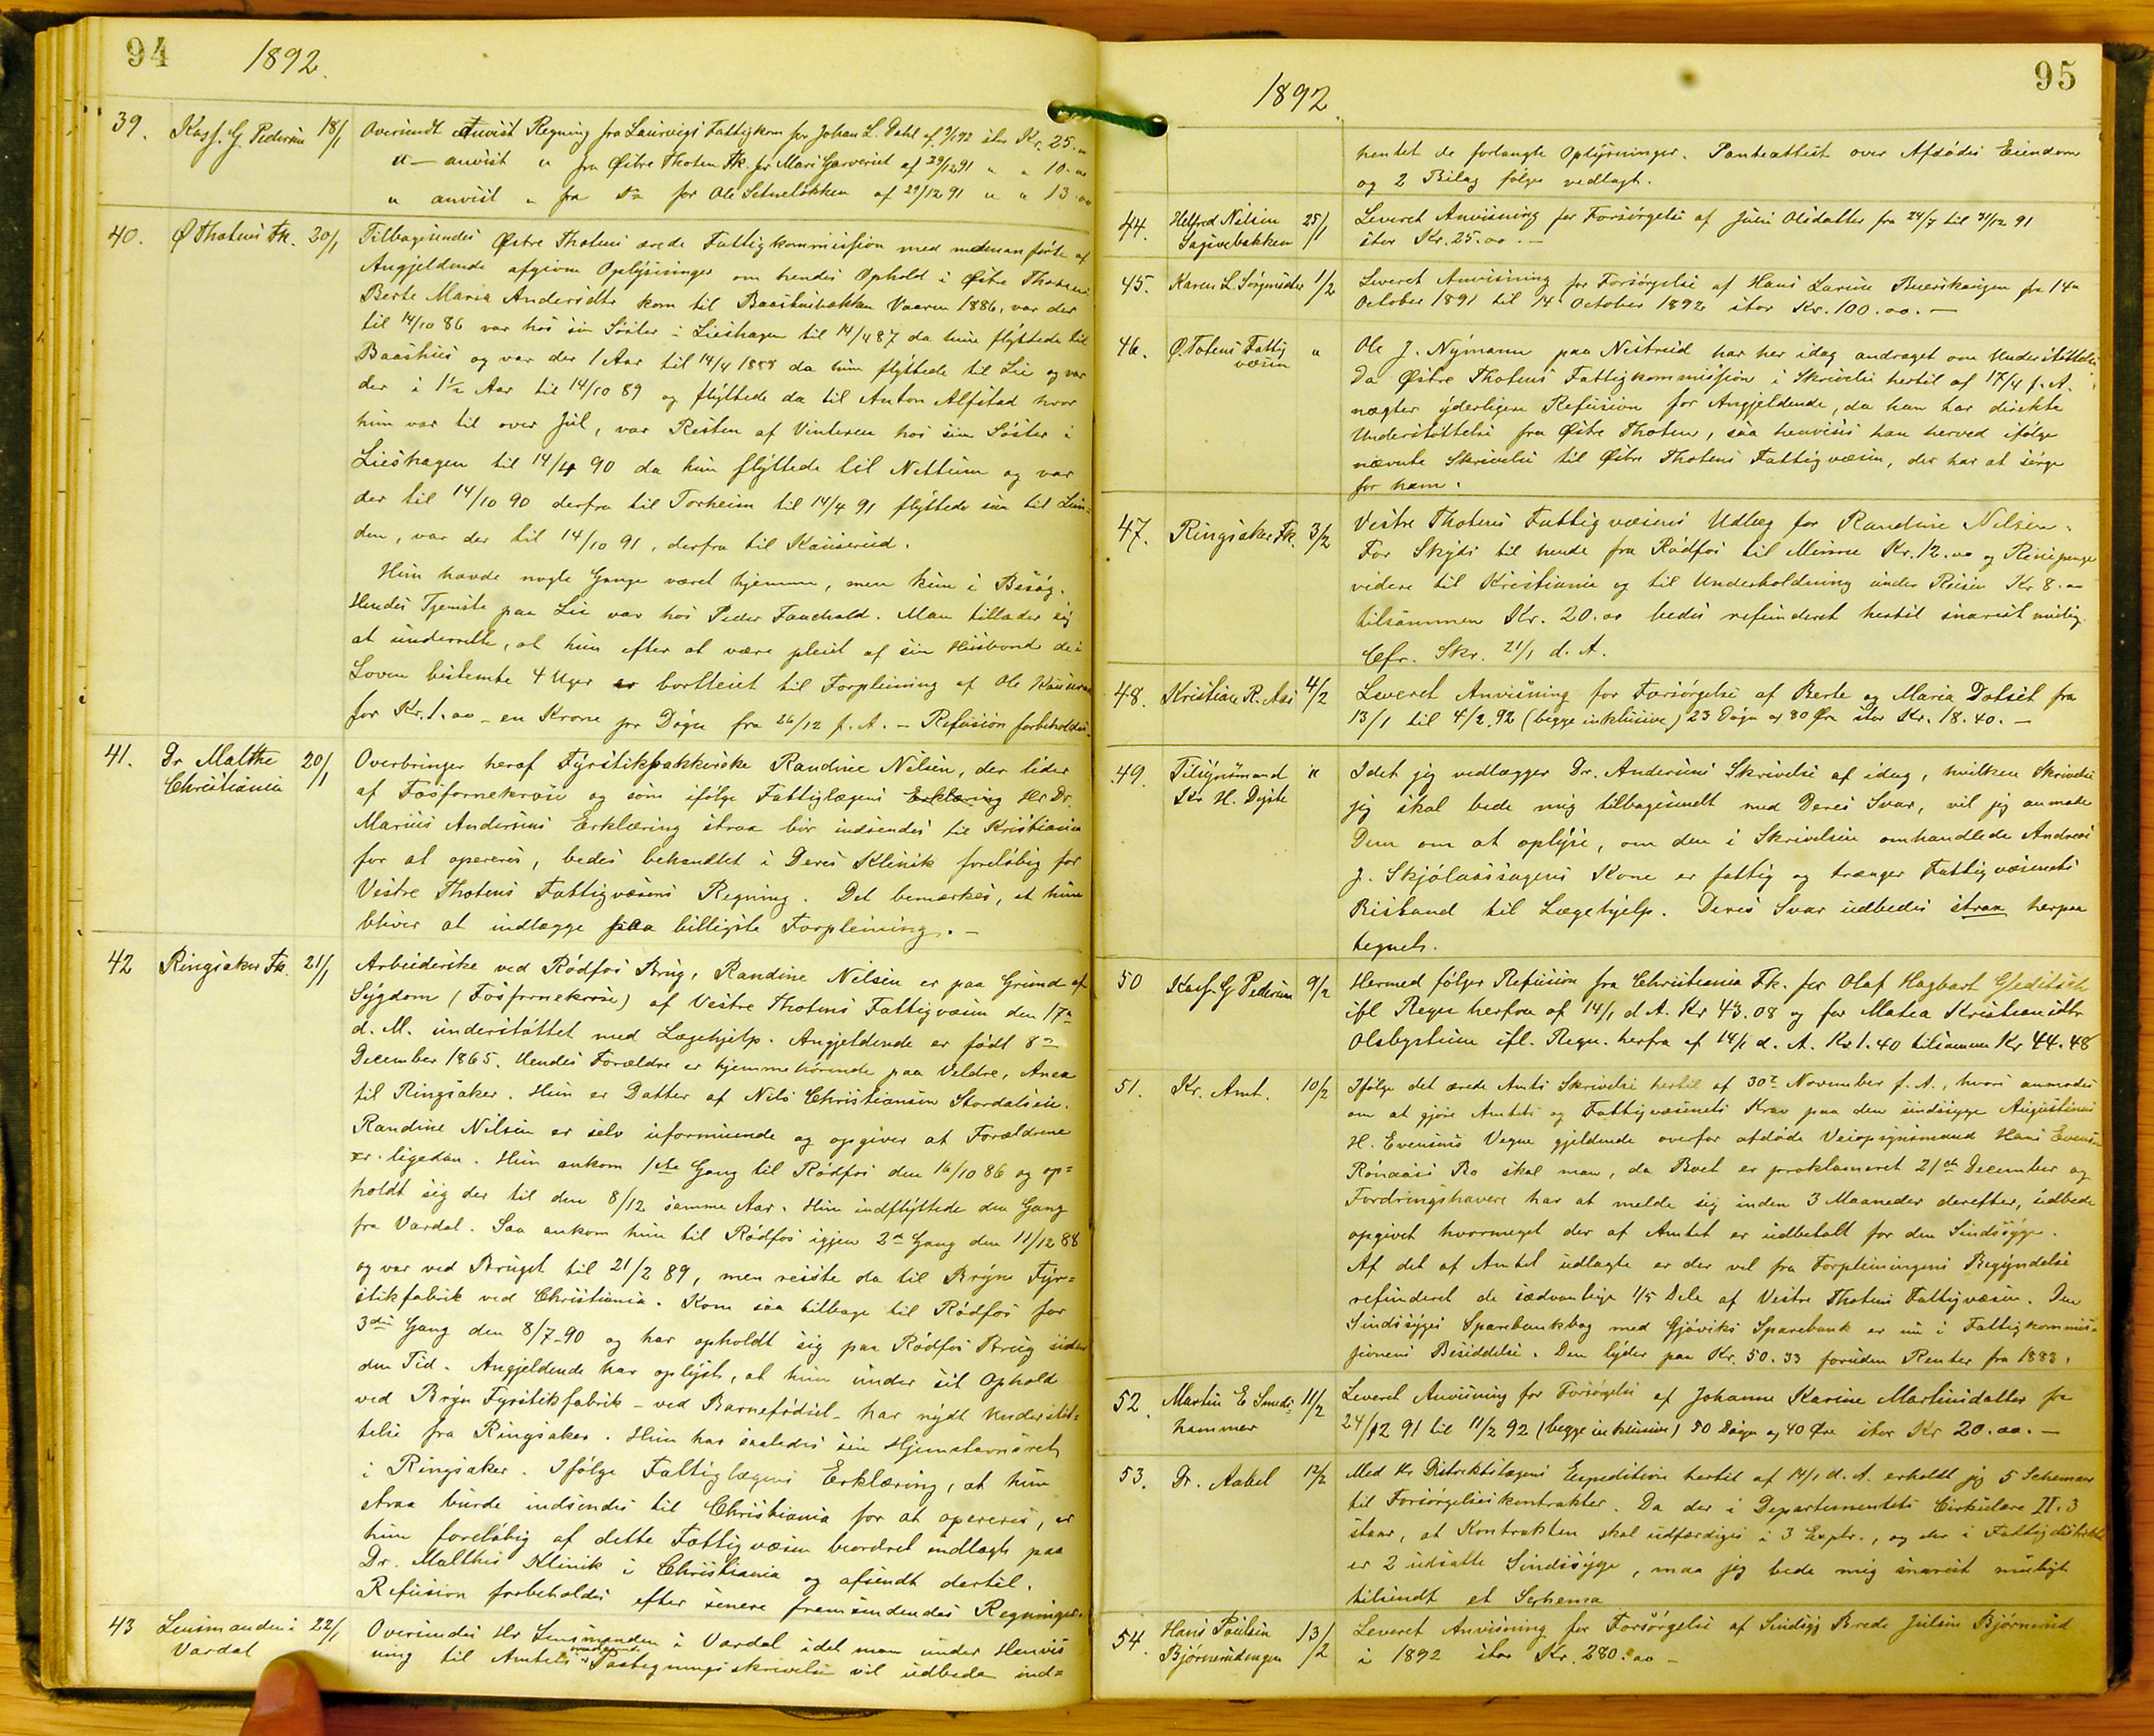 94
1892.
39. Kass. G. Pedersen 18/1 Oversendt Anvist Regning fra Laurvigs Fattigkom for Johan L. Dahl af 9/1 92 stor Kr. 25.„
„— anvist „ fra Østre Thoten Fk. for Mari Garveriet af 29/12 91 „ „ 10.oo
„ anvist „ fra Do for Ole Setneløkken af 29/12 91 „ „ 13.oo
40. Ø Thotens Fk. 20/1 Tilbagesendes Østre Thotens ærede Fattigkommission med nedenanførte af
Angjeldende afgivne Oplysninger om hendes Ophold i Østre Thoten:
Berte Maria Andersdtr kom til Baashusbakken Vaaren 1886, var der
til 14/10 86 var hos sin Søster i Lieshagen til 14/4 87 da hun flyttede til
Baashus og var der 1 Aar til 14/4 1888 da hun flyttede til Lie og var
der i 1½ Aar til 14/10 89 og flyttede da til Anton Alfstad hvor
hun var til over Jul, var Resten af Vinteren hos sin Søster i
Lieshagen til 14/4 90 da hun flyttede til Nettum og var
der til 14/10 90 derfra til Torheim til 14/4 91 flyttede saa til Lun=
den, var der til 14/10 91, derfra til Kauserud.
Hun havde nogle Gange været hjemme, men kun i Besøg.
Hendes Tjeneste paa Lie var hos Peder Fauchald. Man tillader sig
at underrette, at hun efter at være pleiet af sin Husbond de i
Loven bestemte 4 Uger er bortleiet til Forpleining af Ole Kauserud
for Kr. 1.oo – en Krone pr Døgn fra 26/12 f. A. – Refusion forbeholdes.
41. Dr Malthe
Christiania 20/1 Overbringer heraf Fyrstikpakkerske Randine Nilsen, der lider
af Fosfornekrose og som ifølge Fattiglægens Erklæring Hr Dr.
Marius Andersens Erklæring strax bør indsendes til Kristiania
for at opereres, bedes behandlet i Deres Klinik foreløbig for
Vestre Thotens Fattigvæsens Regning. Det bemærkes, at hun
bliver at indlægge paa billigste Forpleining. –
42 Ringsaker Fk. 21/1 Arbeiderske ved Rødfos Brug, Randine Nilsen er paa Grund af
Sygdom (Fosfornekrose) af Vestre Thotens Fattigvæsen den 17de
d. M. understøttet med Lægehjelp. Angjeldende er født 8de
December 1865. Hendes Forældre er hjemmehørende paa Veldre, Anex
til Ringsaker. Hun er Datter af Nils Christiansen Stordalseie.
Randine Nilsen er selv uformuende og opgiver at Forældrene
er ligedan. Hun ankom 1ste Gang til Rødfos den 16/10 86 og op=
holdt sig der til den 8/12 samme Aar. Hun indflyttede den Gang
fra Vardal. Saa ankom hun til Rødfos igjen 2den Gang den 11/12 88
og var ved Bruget til 21/2 89, men reiste da til Bryns Fyr=
stikfabrik ved Christiania. Kom saa tilbage til Rødfos for
3die Gang den 8/7-90 og har opholdt sig paa Rødfos Brug siden
den Tid. Angjeldende har oplyst, at hun under sit Ophold
ved Bryn Fyrstikfabrik – ved Barnefødsel – har nydt Understøt=
telse fra Ringsaker. Hun har saaledes sin Hjemstavnsret
i Ringsaker. Ifølge Fattiglægens Erklæring, at hun
strax burde indsendes til Christiania for at opereres, er
hun foreløbig af dette Fattigvæsen beordret indlagt paa
Dr. Malthes Klinik i Christiania og afsendt dertil.
Refusion forbeholdes efter senere fremsendendes Regninger.
43 Lensmanden i
Vardal 22/1 Oversendes Hr Lensmanden i Vardal idet man under Henvis
ning til Amtets Paategningsskrivelse vil udbede ind=
95
1892.
hentet de forlangte Oplysninger. Panteattest over Afdødes Eiendom
og 2 Bilag følger vedlagt.
44. Helfred Nilsen
Sagivebakken 25/1 Leveret Anvisning for Forsørgelse af Julie Olsdatter fra 24/7 til 31/12 91
stor Kr. 25.oo. –
45. Karen L. Sørgenister 1/2 Leveret Anvisning for Forsørgelse af Hans Larsen fra 14de
October 1891 til 14 October 1892 stor Kr. 100.oo. –
46. Ø. Totens Fattig
væsen „ Ole J. Nymann paa Nistreid har her idag andraget om Understøttelse.
Da Østre Thotens Fattigkommission i Skrivelse hertil af 17/4 f. A.
nægter yderligere Refusion for Angjeldende, da han har direkte
Understøttelse fra Østre Thoten, saa henvises han herved ifølge
nævnte Skrivelse til Østre Thotens Fattigvæsen, der har at sørge
for ham.
47. Ringsaker Fk. 3/2 Vestre Thotens Fattigvæsens Udlæg for Randine Nilsen.
For Skyds til hende fra Rødfos til Minne Kr. 12.oo og Reisepenge
videre til Kristiania og til Underholdning under Reisen Kr 8.oo
tilsammen Kr. 20.oo bedes refunderet hertil snarest mulig.
Cfr. Skr. 21/1 d. A.
48. Kristian R. Aas 4/2 Leveret Anvisning for Forsørgelse af Berte og Maria Dotset fra
13/1 til 4/2. 92 (begge inklusive) 23 Døgn af 80 Øre stor Kr. 18.40. –
49. Tilsynsmand
Kr H. Dyste „ Idet jeg vedlægger Dr. Andersens Skrivelse af idag, hvilken Skrivelse
jeg skal bede mig tilbagesendt med Deres Svar, vil jeg anmode
Dem om at oplyse, om den i Skrivelsen omhandlede Andreas
J. Skjølaassagens Kone er fattig og trænger Fattigvæsenets
Bistand til Lægehjelp. Deres Svar udbedes strax herpaa
tegnet.
50 Kass. G Pedersen 9/2 Hermed følger Refusion fra Christiania Fk. for Olaf Hagbart Gleditsch
ifl Regn herfra af 14/1 d A. Kr 43.08 og for Matea Kristiansdtr
Olsbysteen ifl. Regn. herfra af 14/1 d. A. Kr 1.40 tilsammen Kr 44.48
51. Kr. Amt. 10/2 Ifølge det ærede Amts Skrivelse hertil af 30te November f. A., hvori anmodes
om at gjøre Amtets og Fattigvæsenets Krav paa den sindssyge Augustinus
H. Evensens Vegne gjeldende overfor afdøde Veiopsynsmand Hans Evensen
Rønaas's Bo skal man, da Boet er proklameret 21de December og
Fordringshavere har at melde sig inden 3 Maaneder derefter, udbede
opgivet hvormeget der af Amtet er udbetalt for den Sindssyge.
Af det af Amtet udlagte er der vel fra Forpleiningens Begyndelse
refunderet de sædvanlige 4/5 Dele af Vestre Thotens Fattigvæsen. Den
Sindssyges Sparebankbog med Gjøviks Sparebank er nu i Fattigkommis=
sionens Besiddelse. Den lyder paa Kr. 50.33 foruden Renter fra 1883.
52. Martin E Smeds=
hammer 11/2 Leveret Anvisning for Forsørgelse af Johanne Karine Martinsdatter fra
24/12 91 til 11/2 92 (begge inklusive) 50 Døgn af 40 Øre stor Kr 20.oo. –
53. Dr. Aabel 12/2 Med Hr Distriktslægens Expedition hertil af 14/1 d. A. erholdt jeg 5 Schemaer
til Forsørgelseskontrakter. Da der i Departementets Cirkulære II. 3
staar, at Kontrakten skal udfærdiges i 3 Explr., og der i Fattigdistriktet
er 2 udsatte Sindssyge, maa jeg bede mig snarest muligt
tilsendt et Schema
54. Hans Poulsen
Bjørnerudengen 13/2 Leveret Anvisning for Forsørgelse af Sindsyg Brede Julsen Bjørnerud
i 1892 stor Kr. 280.oo –